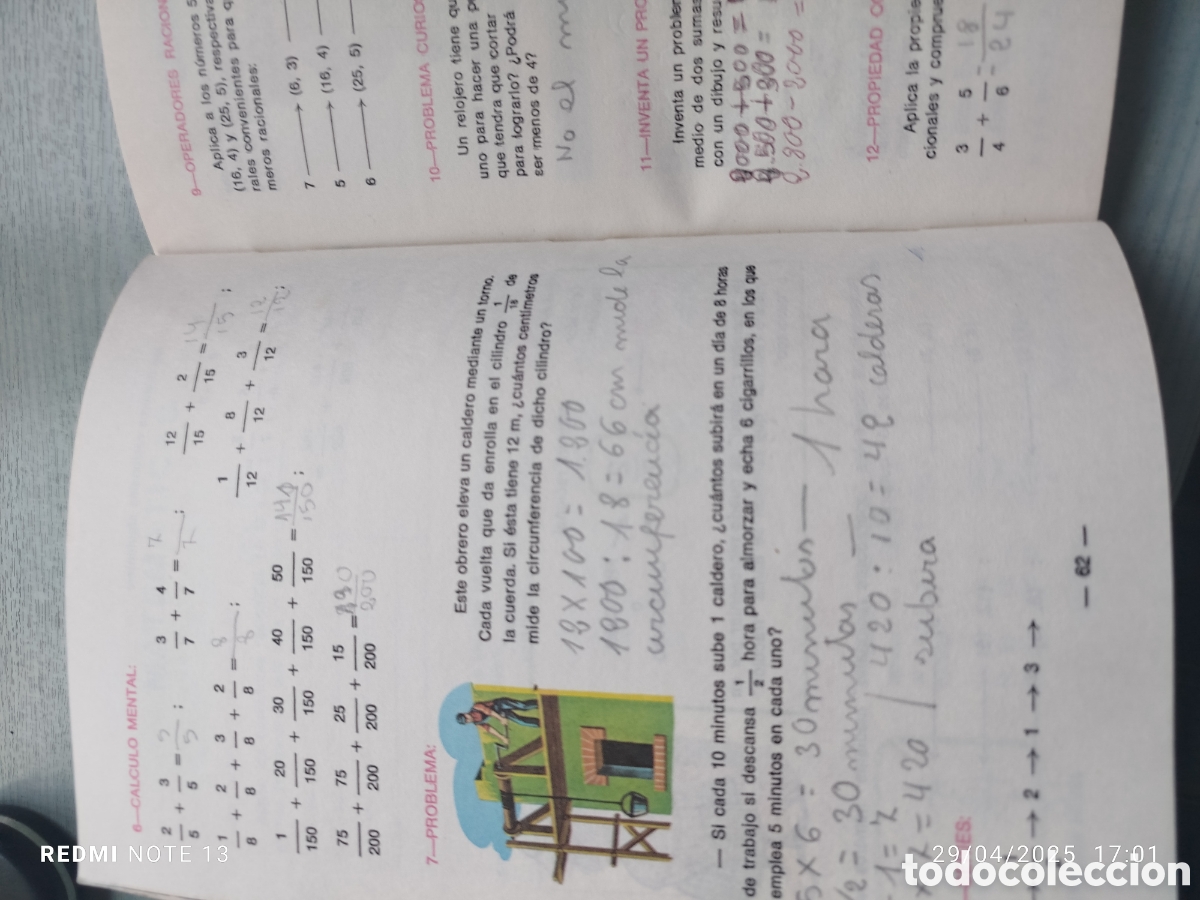 6—CALCULO MENTAL:
2/5 + 3/5 = 5/5 ; 3/7 + 4/7 = 7/7 ; 12/15 + 2/15 = 14/15 ;
1/8 + 2/8 + 3/8 + 2/8 = 8/8 ; 1/12 + 8/12 + 3/12 = 12/12 ;
1/150 + 20/150 + 30/150 + 40/150 + 50/150 = 141/150 ;
75/200 + 75/200 + 25/200 + 15/200 = 190/200
7—PROBLEMA:
Este obrero eleva un caldero mediante un torno.
Cada vuelta que da enrolla en el cilindro 1/18 de
la cuerda. Si ésta tiene 12 m, ¿cuántos centímetros
mide la circunferencia de dicho cilindro?
18 X 100 = 1.800
1800 : 18 = 66 cm mide la
circunferencia
— Si cada 10 minutos sube 1 caldero, ¿cuántos subirá en un día de 8 horas
de trabajo si descansa 1/2 hora para almorzar y echa 6 cigarrillos, en los que
emplea 5 minutos en cada uno?
5 X 6 = 30 minutos — 1 hora
/2 = 30 minutos —
- 1 = 7 / 420 : 10 = 42 calderas
= 420 / subira
ES:
→ 2 → 1 → 3 →
— 62 —
9—OPERADORES RACION
Aplica a los números 5
(16, 4) y (25, 5), respectiva
rales convenientes para q
meros racionales:
7 → (6, 3)
5 → (16, 4)
6 → (25, 5)
10—PROBLEMA CURIO
Un relojero tiene qu
uno para hacer una p
que tendra que cortar
para lograrlo? ¿Podrá
ser menos de 4?
No el m
11—INVENTA UN PRO
Inventa un problem
medio de dos sumas
con un dibujo y resu
000 + 500 =
500 + 300 =
2.800 - 2000 =
12—PROPIEDAD CO
Aplica la propie
cionales y comprue
3/4 + 5/6 = 18/24
REDMI NOTE 13
29/04/2025 17:01
todocoleccion